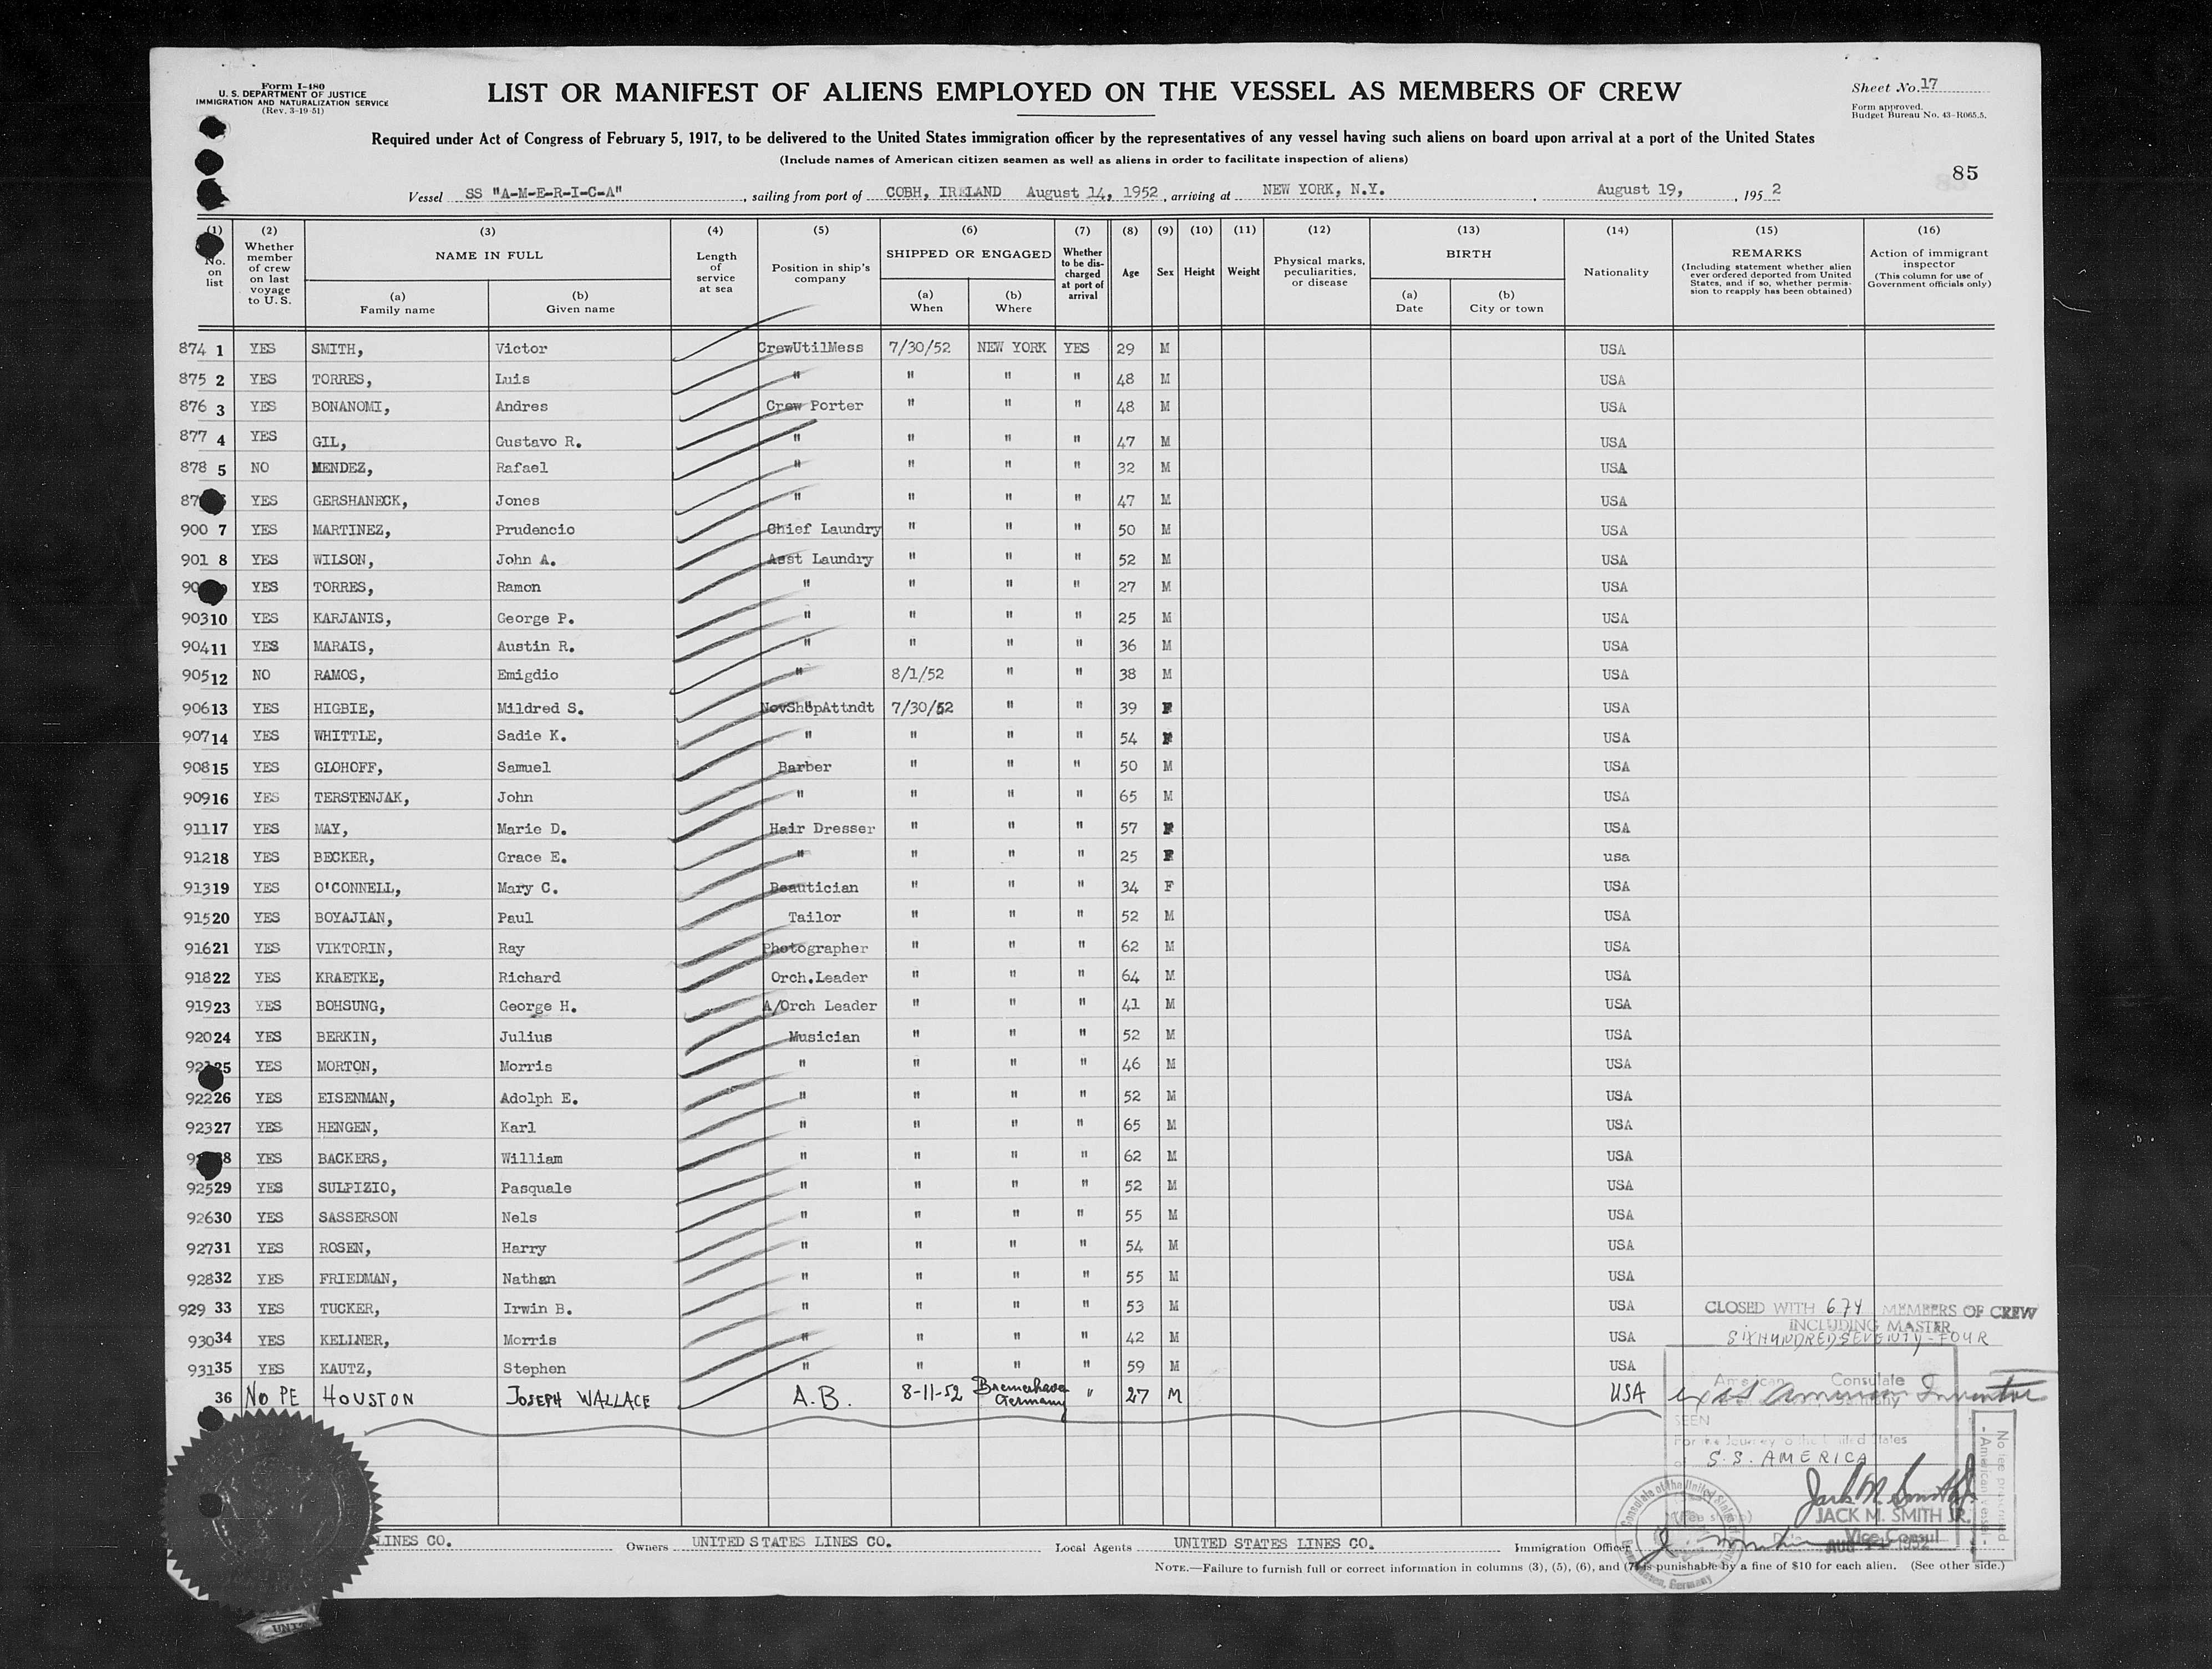 Form I-480
U. S. DEPARTMENT OF JUSTICE
IMMIGRATION AND NATURALIZATION SERVICE
(Rev. 3-19-51)
LIST OR MANIFEST OF ALIENS EMPLOYED ON THE VESSEL AS MEMBERS OF CREW
Sheet No. 17
Form approved.
Budget Bureau No. 43-R065.5.
Required under Act of Congress of February 5, 1917, to be delivered to the United States immigration officer by the representatives of any vessel having such aliens on board upon arrival at a port of the United States
(Include names of American citizen seamen as well as aliens in order to facilitate inspection of aliens)
85
Vessel SS "A-M-E-R-I-C-A", sailing from port of COBH, IRELAND August 14, 1952, arriving at NEW YORK, N.Y. August 19, 1952
(1) No. on list
(2) Whether member of crew on last voyage to U. S.
(3) NAME IN FULL
(a) Family name
(b) Given name
(4) Length of service at sea
(5) Position in ship's company
(6) SHIPPED OR ENGAGED
(a) When
(b) Where
(7) Whether to be discharged at port of arrival
(8) Age
(9) Sex
(10) Height
(11) Weight
(12) Physical marks, peculiarities, or disease
(13) BIRTH
(a) Date
(b) City or town
(14) Nationality
(15) REMARKS
(Including statement whether alien ever ordered deported from United States, and if so, whether permission to reapply has been obtained)
(16) Action of immigrant inspector
(This column for use of Government officials only)
874 1 YES SMITH, Victor CrewUtilMess 7/30/52 NEW YORK YES 29 M USA
875 2 YES TORRES, Luis " " " " 48 M USA
876 3 YES BONANOMI, Andres Crew Porter " " " 48 M USA
877 4 YES GIL, Gustavo R. " " " " 47 M USA
878 5 NO MENDEZ, Rafael " " " " 32 M USA
YES GERSHANECK, Jones " " " " 47 M USA
900 7 YES MARTINEZ, Prudencio Chief Laundry " " " 50 M USA
901 8 YES WILSON, John A. Asst Laundry " " " 52 M USA
YES TORRES, Ramon " " " " 27 M USA
903 10 YES KARJANIS, George P. " " " " 25 M USA
904 11 YES MARAIS, Austin R. " " " " 36 M USA
905 12 NO RAMOS, Emigdio " 8/1/52 " " 38 M USA
906 13 YES HIGBIE, Mildred S. NovShopAttndt 7/30/52 " " 39 F USA
907 14 YES WHITTLE, Sadie K. " " " " 54 F USA
908 15 YES GLOHOFF, Samuel Barber " " " 50 M USA
909 16 YES TERSTENJAK, John " " " " 65 M USA
911 17 YES MAY, Marie D. Hair Dresser " " " 57 F USA
912 18 YES BECKER, Grace E. " " " " 25 F usa
913 19 YES O'CONNELL, Mary C. Beautician " " " 34 F USA
915 20 YES BOYAJIAN, Paul Tailor " " " 52 M USA
916 21 YES VIKTORIN, Ray Photographer " " " 62 M USA
918 22 YES KRAETKE, Richard Orch.Leader " " " 64 M USA
919 23 YES BOHSUNG, George H. A/Orch Leader " " " 41 M USA
920 24 YES BERKIN, Julius Musician " " " 52 M USA
25 YES MORTON, Morris " " " " 46 M USA
922 26 YES EISENMAN, Adolph E. " " " " 52 M USA
923 27 YES HENGEN, Karl " " " " 65 M USA
YES BACKERS, William " " " " 62 M USA
925 29 YES SULPIZIO, Pasquale " " " " 52 M USA
926 30 YES SASSERSON Nels " " " " 55 M USA
927 31 YES ROSEN, Harry " " " " 54 M USA
928 32 YES FRIEDMAN, Nathan " " " " 55 M USA
929 33 YES TUCKER, Irwin B. " " " " 53 M USA
CLOSED WITH 674 MEMBERS OF CREW
INCLUDING MASTER
930 34 YES KELLNER, Morris " " " " 42 M USA
SIX HUNDRED SEVENTY-FOUR
931 35 YES KAUTZ, Stephen " " " " 59 M USA
American Consulate
36 NO PE HOUSTON JOSEPH WALLACE A.B. 8-11-52 Bremerhaven Germany " 27 M USA ex SS American Inventor
Germany
SEEN
For the journey to the United States
S.S. AMERICA
No fee prescribed
- American vessel -
Jack M. Smith Jr.
JACK M. SMITH JR.
Vice Consul
Consulate of the United States
LINES CO. Owners UNITED STATES LINES CO. Local Agents UNITED STATES LINES CO. Immigration Officer
NOTE.—Failure to furnish full or correct information in columns (3), (5), (6), and (7) is punishable by a fine of $10 for each alien. (See other side.)